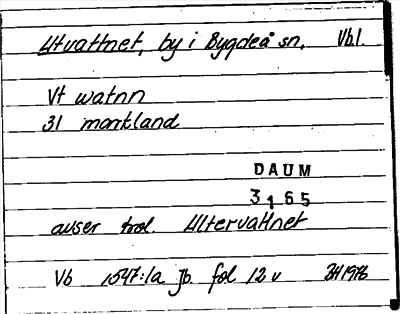 Utvattnet, by i Bygdeå sn. Vbl.
Vt watnn
31 markland
DAUM
3165
avser trol. Ultervattnet
Vb 1547:1a jb. fol 12 v